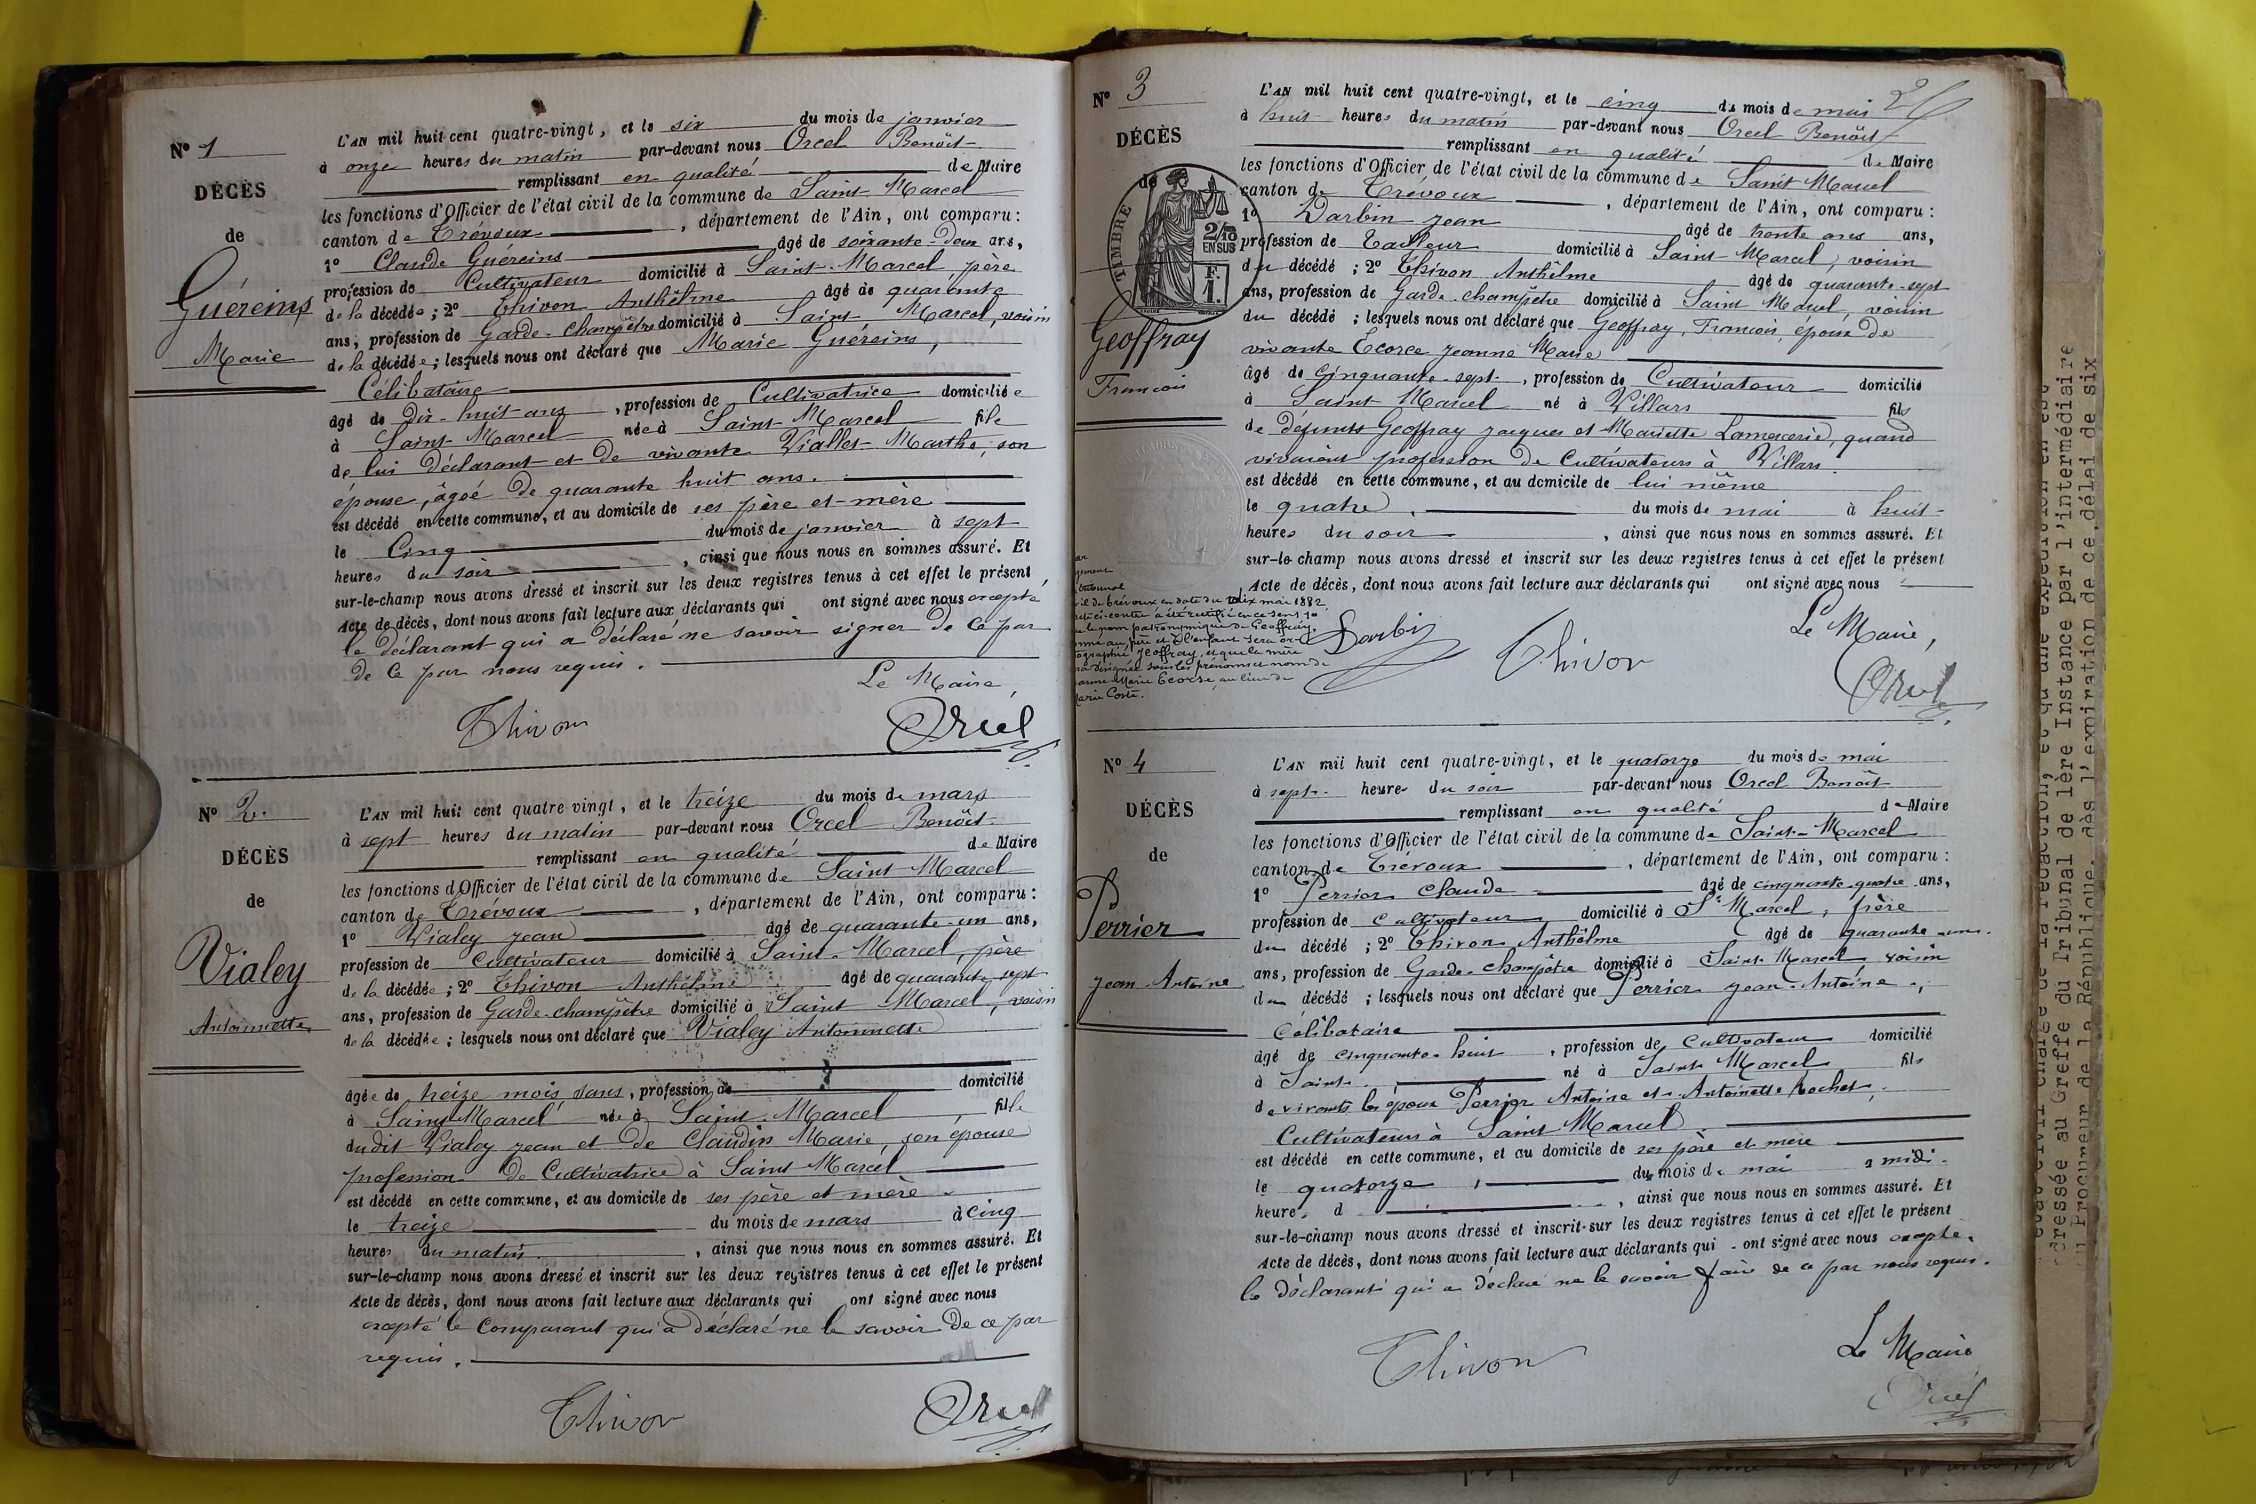 N° 1
DÉCÈS
de
Guéreins
Marie
L'AN mil huit cent quatre-vingt, et le six du mois de janvier
à onze heures du matin par-devant nous Orcel Benoît
remplissant en qualité de Maire
les fonctions d'Officier de l'état civil de la commune de Saint Marcel
canton de Trévoux , département de l'Ain, ont comparu :
1° Claude Guéreins âgé de soixante-deux ans,
profession de Cultivateur domicilié à Saint-Marcel, père
de la décédée ; 2° Thivon Anthelme âgé de quarante
ans, profession de Garde-champêtre domicilié à Saint Marcel, voisin
de la décédée ; lesquels nous ont déclaré que Marie Guéreins,
Célibataire
âgé de dix-huit ans , profession de Cultivatrice domiciliée
à Saint-Marcel née à Saint-Marcel fille
de lui déclarant et de vivante Viallet Marthe, son
épouse, âgée de quarante huit ans.
est décédé en cette commune, et au domicile de ses père et mère
le Cinq du mois de janvier à sept
heures du soir , ainsi que nous nous en sommes assuré. Et
sur-le-champ nous avons dressé et inscrit sur les deux registres tenus à cet effet le présent
Acte de décès, dont nous avons fait lecture aux déclarants qui ont signé avec nous excepté
le déclarant qui a déclaré ne savoir signer de ce par
de ce par nous requis.
Le Maire,
Thivon Orcel
N° 2.
DÉCÈS
de
Vialey
Antoinette
L'AN mil huit cent quatre vingt, et le treize du mois de mars
à sept heures du matin par-devant nous Orcel Benoît
remplissant en qualité de Maire
les fonctions d'Officier de l'état civil de la commune de Saint Marcel
canton de Trévoux , département de l'Ain, ont comparu :
1° Vialey Jean âgé de quarante-un ans,
profession de Cultivateur domicilié à Saint-Marcel, père
de la décédée ; 2° Thivon Anthelme âgé de quarante sept
ans, profession de Garde-champêtre domicilié à Saint Marcel, voisin
de la décédée ; lesquels nous ont déclaré que Vialey Antoinette
âgée de treize mois, sans, profession de domicilié
à Saint Marcel née à Saint-Marcel , fille
du dit Vialey Jean et de Claudin Marie, son épouse
profession de Cultivatrice à Saint Marcel
est décédé en cette commune, et au domicile de ses père et mère
le treize du mois de mars à cinq
heures du matin , ainsi que nous nous en sommes assuré. Et
sur-le-champ nous avons dressé et inscrit sur les deux registres tenus à cet effet le présent
Acte de décès, dont nous avons fait lecture aux déclarants qui ont signé avec nous
excepté le Comparant qui a déclaré ne le savoir de ce par
requis.
Thivon Orcel
N° 3
DÉCÈS
de
TIMBRE
2/10
EN SUS
F.
1.
Geoffray
Francois
L'AN mil huit cent quatre-vingt, et le cinq du mois de mai
à huit heures du matin par-devant nous Orcel Benoît
remplissant en qualité de Maire
les fonctions d'Officier de l'état civil de la commune de Saint Marcel
canton de Trévoux , département de l'Ain, ont comparu :
1° Darbin Jean âgé de trente ans ans,
profession de Tailleur domicilié à Saint Marcel, voisin
du décédé ; 2° Thivon Anthelme âgé de quarante-sept
ans, profession de Garde-champêtre domicilié à Saint Marcel, voisin
du décédé ; lesquels nous ont déclaré que Geoffray, Francois, époux de
vivante Ecorce Jeanne Marie
âgé de Cinquante-sept , profession de Cultivateur domicilié
à Saint Marcel né à Villars fils
de défunts Geoffray Jacques et Mariette Lamercerie, quand
vivaient profession de Cultivateurs à Villars.
est décédé en cette commune, et au domicile de lui même
le quatre du mois de mai à huit
heures du soir , ainsi que nous nous en sommes assuré. Et
sur-le-champ nous avons dressé et inscrit sur les deux registres tenus à cet effet le présent
Acte de décès, dont nous avons fait lecture aux déclarants qui ont signé avec nous
en date du dix mai 1882
Le Maire,
Darbin Thivon Orcel
N° 4
DÉCÈS
de
Perrier
Jean Antoine
L'AN mil huit cent quatre-vingt, et le quatorze du mois de mai
à sept heures du soir par-devant nous Orcel Benoît
remplissant en qualité de Maire
les fonctions d'Officier de l'état civil de la commune de Saint-Marcel
canton de Trévoux , département de l'Ain, ont comparu :
1° Perrier Claude âgé de cinquante-quatre ans,
profession de cultivateur domicilié à St Marcel, frère
du décédé ; 2° Thivon Anthelme âgé de quarante
ans, profession de Garde-champêtre domicilié à Saint Marcel voisin
du décédé ; lesquels nous ont déclaré que Perrier Jean-Antoine,
Célibataire
âgé de cinquante-huit , profession de Cultivateur domicilié
à Saint né à Saint Marcel fils
de vivants les époux Perrier Antoine et Antoinette Rochet,
Cultivateurs à Saint Marcel.
est décédé en cette commune, et au domicile de ses père et mère
le quatorze du mois de mai à midi
heure d , ainsi que nous nous en sommes assuré. Et
sur-le-champ nous avons dressé et inscrit sur les deux registres tenus à cet effet le présent
Acte de décès, dont nous avons fait lecture aux déclarants qui ont signé avec nous excepté
le déclarant qui a déclaré ne le savoir faire de ce par nous requis.
Le Maire
Thivon Orcel
dressée au Greffe du Tribunal de 1ère Instance par l'intermédiaire
Procureur de la République, dès l'expiration de ce délai de six